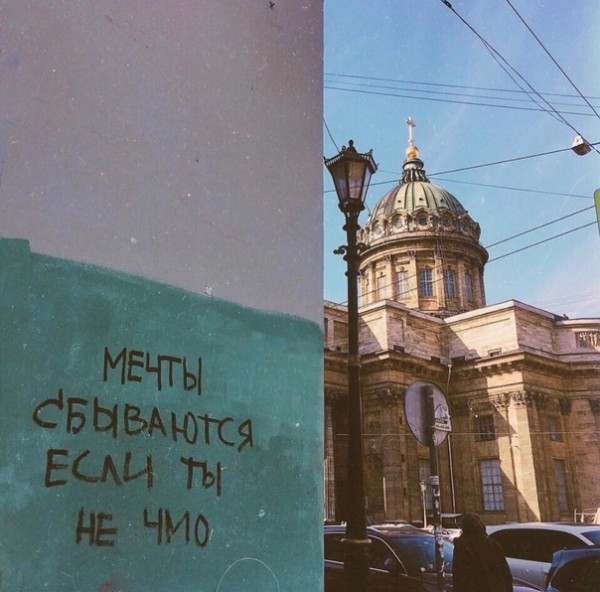 МЕЧТЫ
СБЫВАЮТСЯ
ЕСЛИ ТЫ
НЕ ЧМО